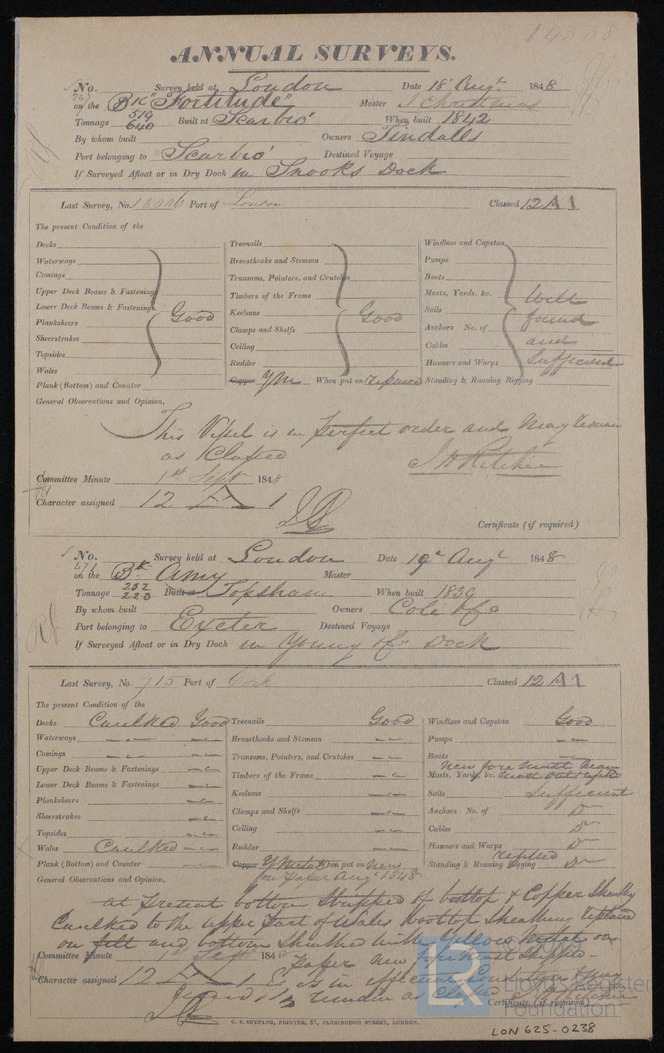 14338
ANNUAL SURVEYS.
No. Survey held at London Date 18 Augt. 1848
on the Bk "Fortitude" Master J Christmas
Tonnage 519 640 Built at Scarbro' When built 1842
By whom built Owners Tindalls
Port belonging to Scarbro' Destined Voyage
If Surveyed Afloat or in Dry Dock in Snooks Dock
Last Survey, No. Port of London Classed 12 A1
The present Condition of the
Decks
Waterways
Comings
Upper Deck Beams & Fastenings
Lower Deck Beams & Fastenings
Planksheers
Sheerstrakes
Topsides
Wales
Plank (Bottom) and Counter
Good
Treenails
Breasthooks and Stemson
Transoms, Pointers, and Crutches
Timbers of the Frame
Keelsons
Clamps and Shelfs
Ceiling
Rudder
Good
Copper YM When put on repaired
Windlass and Capstan
Pumps
Boats
Masts, Yards, &c.
Sails
Anchors No. of
Cables
Hawsers and Warps
Standing & Running Rigging
Well found and Sufficient
General Observations and Opinion,
This Vessel is in perfect order and may remain
as Classed
J H Ritchie
Committee Minute 1st Sept 1848
Character assigned 12 A 1
Certificate (if required)
No. Survey held at London Date 19 Augt 1848
on the Bk. Amy Master
Tonnage 252 220 Built at Topsham When built 1839
By whom built Owners Cole & Co
Port belonging to Exeter Destined Voyage
If Surveyed Afloat or in Dry Dock in Young & Co Dock
Last Survey, No. 715 Port of Cork Classed 12 A1
The present Condition of the
Decks Caulked Good
Waterways
Comings
Upper Deck Beams & Fastenings
Lower Deck Beams & Fastenings
Planksheers
Sheerstrakes
Topsides
Wales Caulked
Plank (Bottom) and Counter
Treenails Good
Breasthooks and Stemson
Transoms, Pointers, and Crutches
Timbers of the Frame
Keelsons
Clamps and Shelfs
Ceiling
Rudder
Copper Y Metal When put on New
on paper Augt 1848
Windlass and Capstan Good
Pumps
Boats
New fore mast
Masts, Yards, &c.
Sails Sufficient
Anchors No. of Do
Cables Do
Hawsers and Warps Do
Standing & Running Rigging refitted Do
General Observations and Opinion,
at present bottom Stripped of boottop & Copper Sheathg
Caulked to the upper part of Wales boottop Sheathing replaced
on felt and bottom Sheathed with Yellow Metal on
paper new fore mast Shipped
Committee Minute 1st Sept 1848
is in efficient Condition & may
Character assigned 12 A 1
remain as Classed
Certificate (if required)
C. F. SEYFANG, PRINTER, 57, FARRINGDON STREET, LONDON.
LR
Lloyd's Register
Foundation
LON 625-0238